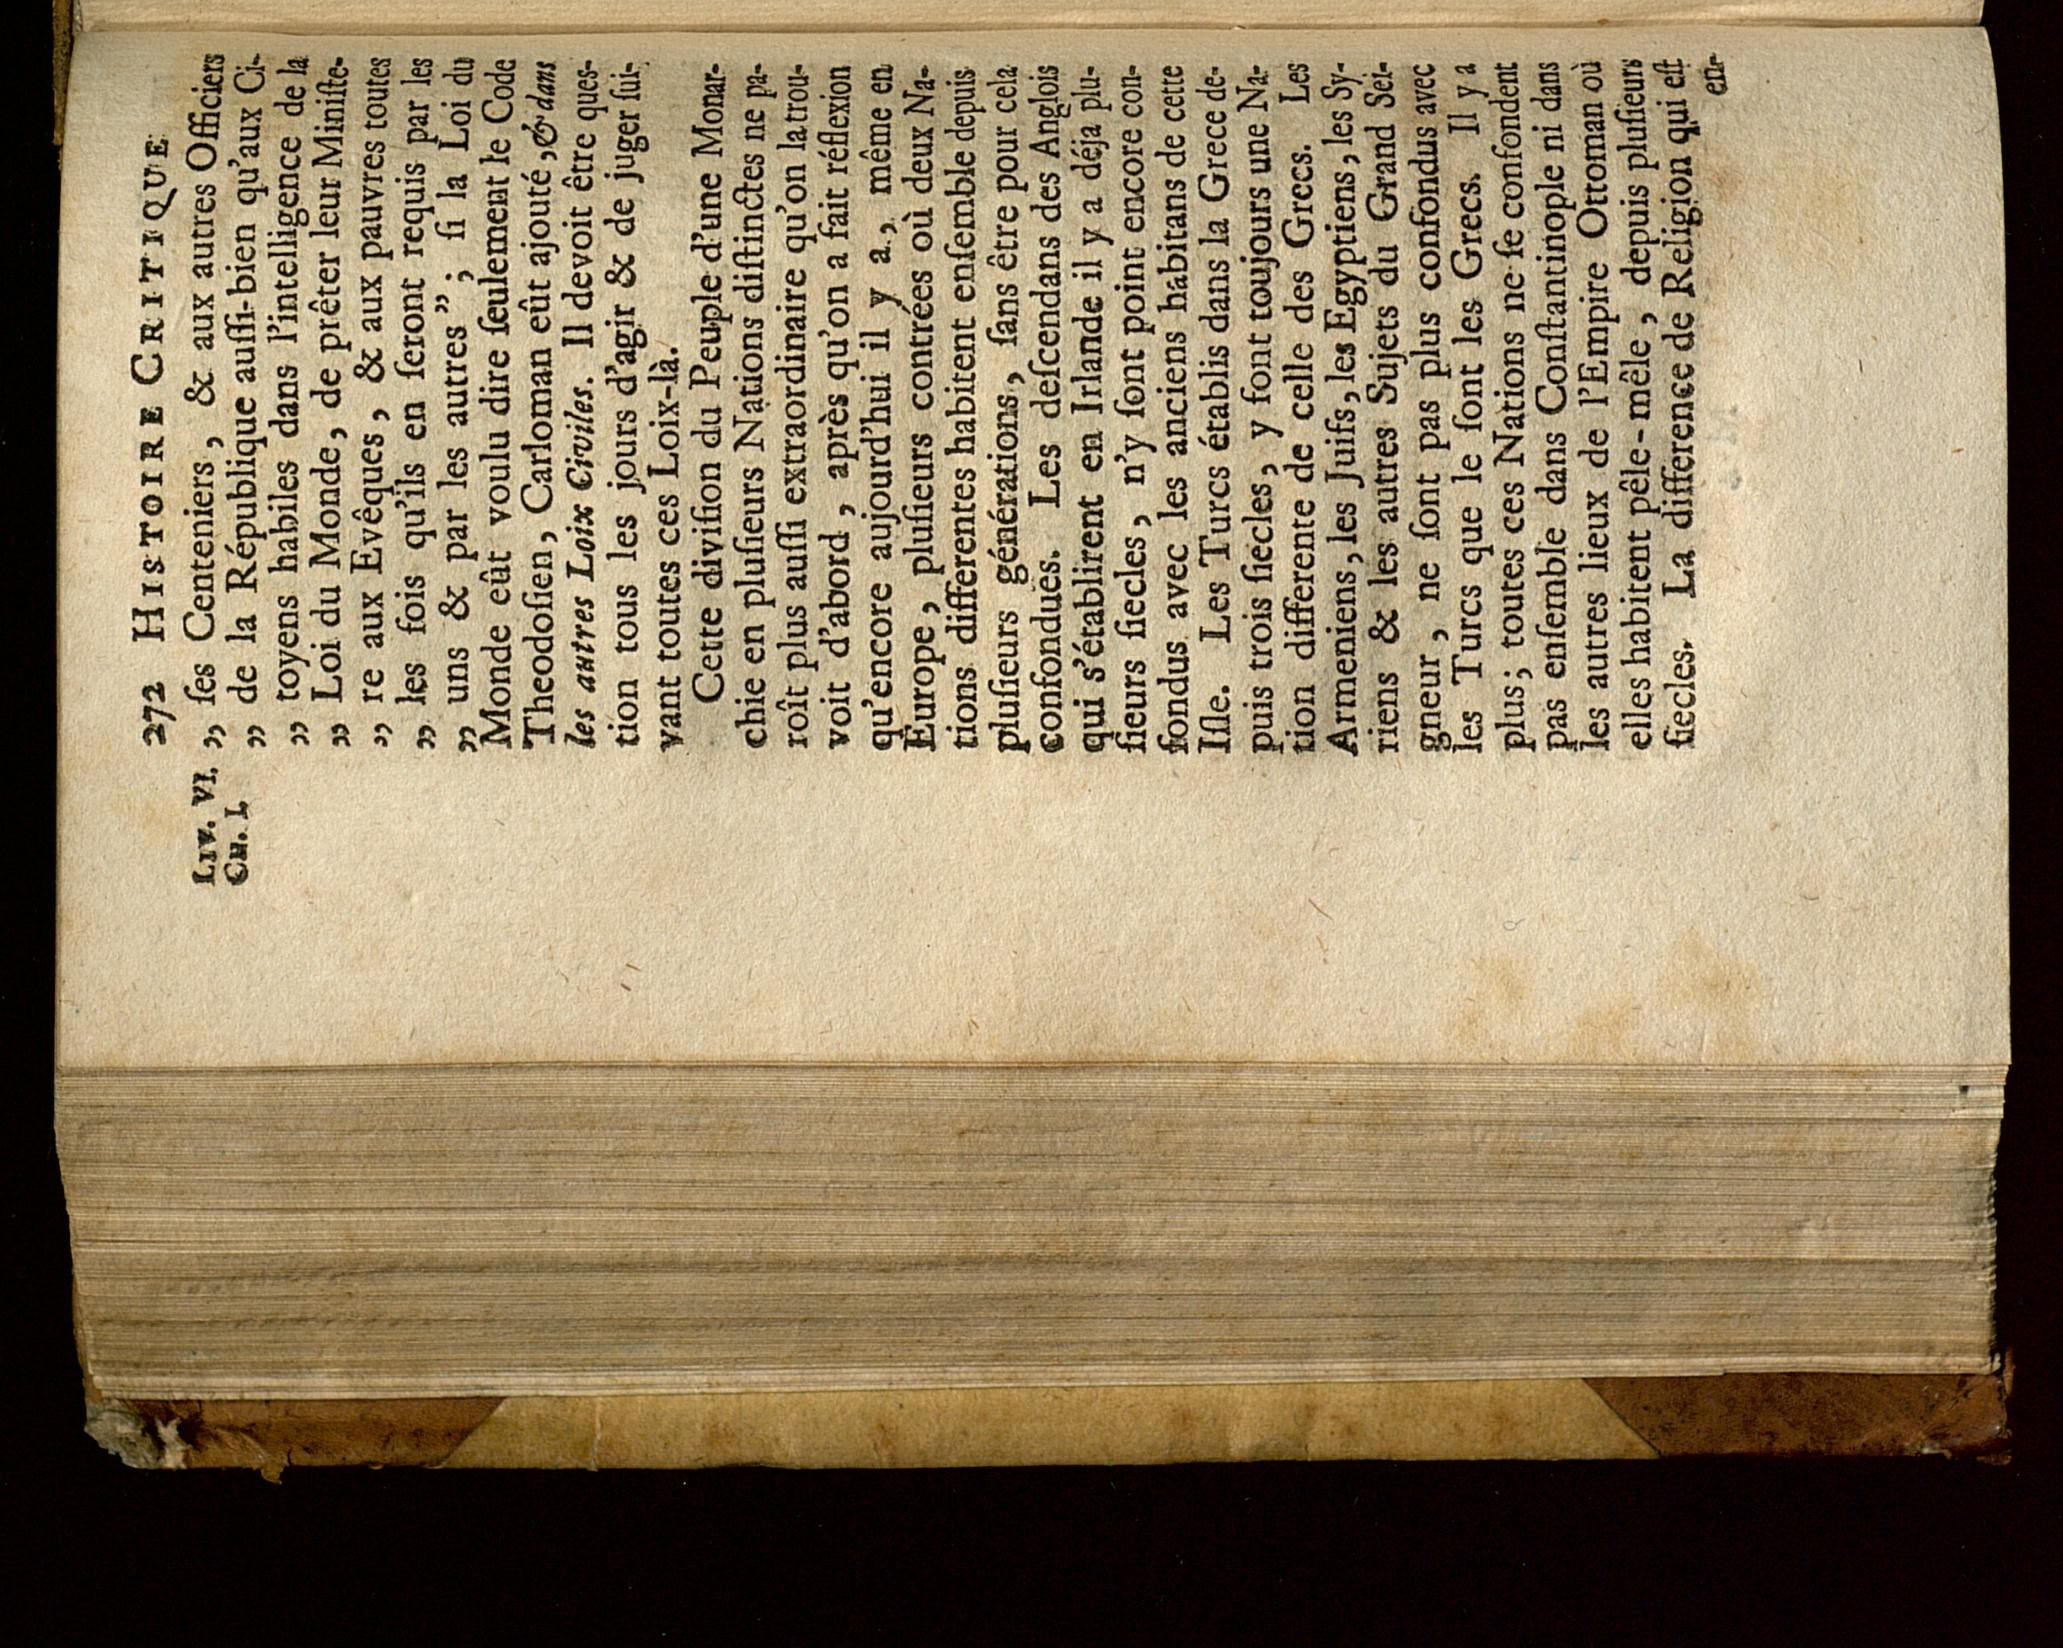 272 HISTOIRE CRITIQUE
LIV. VI.
CH. I.
„ ſes Centeniers, & aux autres Officiers
„ de la République auſſi-bien qu'aux Ci-
„ toyens habiles dans l'intelligence de la
„ Loi du Monde, de prêter leur Miniſte-
„ re aux Evêques, & aux pauvres toutes
„ les fois qu'ils en ſeront requis par les
„ uns & par les autres”; ſi la Loi du
Monde eût voulu dire ſeulement le Code
Theodoſien, Carloman eût ajouté, & dans
les autres Loix Civiles. Il devoit être ques-
tion tous les jours d'agir & de juger ſui-
vant toutes ces Loix-là.
Cette diviſion du Peuple d'une Monar-
chie en pluſieurs Nations diſtinctes ne pa-
roît plus auſſi extraordinaire qu'on la trou-
voit d'abord, après qu'on a fait réflexion
qu'encore aujourd'hui il y a, même en
Europe, pluſieurs contrées où deux Na-
tions differentes habitent enſemble depuis
pluſieurs générations, ſans être pour cela
confonduës. Les deſcendans des Anglois
qui s'établirent en Irlande il y a déja plu-
ſieurs ſiecles, n'y ſont point encore con-
fondus avec les anciens habitans de cette
Iſle. Les Turcs établis dans la Grece de-
puis trois ſiecles, y font toujours une Na-
tion differente de celle des Grecs. Les
Armeniens, les Juifs, les Egyptiens, les Sy-
riens & les autres Sujets du Grand Sei-
gneur, ne ſont pas plus confondus avec
les Turcs que le ſont les Grecs. Il y a
plus; toutes ces Nations ne ſe confondent
pas enſemble dans Conſtantinople ni dans
les autres lieux de l'Empire Ottoman où
elles habitent pêle-mêle, depuis pluſieurs
ſiecles. La difference de Religion qui eſt
en-